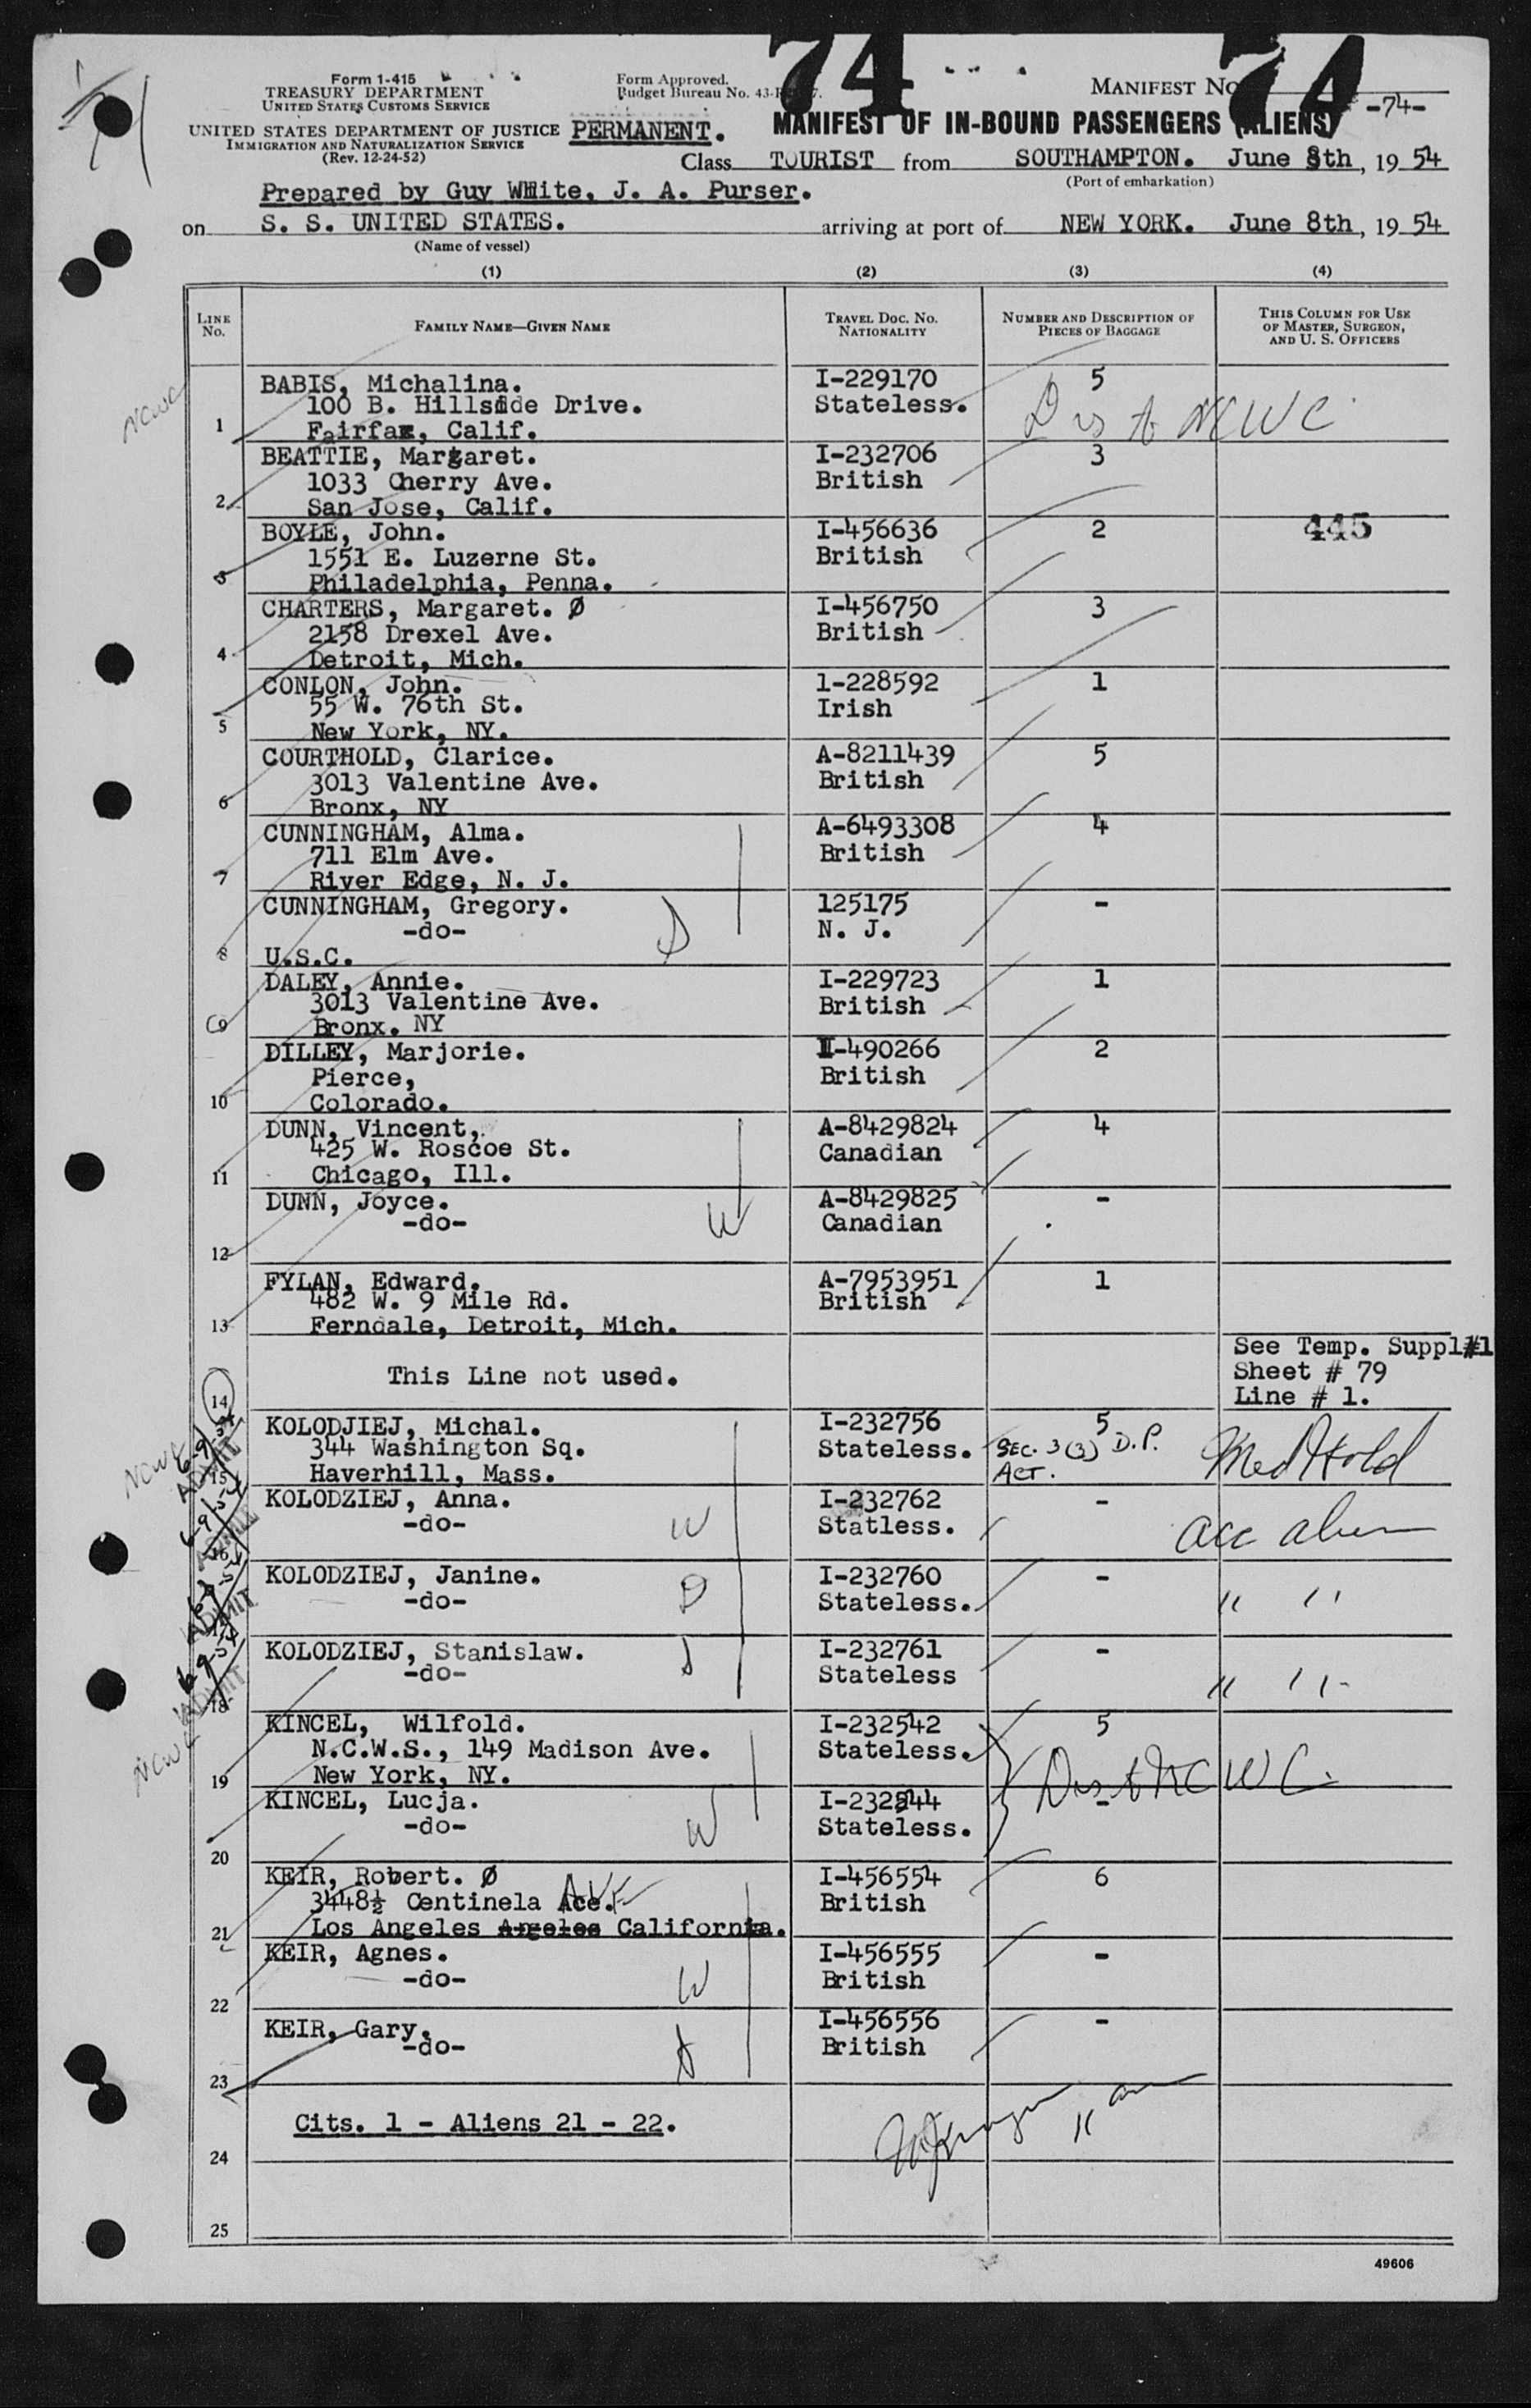 74
74
Form 1-415
TREASURY DEPARTMENT
UNITED STATES CUSTOMS SERVICE
UNITED STATES DEPARTMENT OF JUSTICE
IMMIGRATION AND NATURALIZATION SERVICE
(Rev. 12-24-52)
Form Approved.
Budget Bureau No. 43-
PERMANENT.
MANIFEST No. -74-
MANIFEST OF IN-BOUND PASSENGERS (ALIENS)
Class TOURIST from SOUTHAMPTON. June 8th, 19 54
(Port of embarkation)
Prepared by Guy White, J. A. Purser.
on S. S. UNITED STATES. arriving at port of NEW YORK. June 8th, 19 54
(Name of vessel)
(1) (2) (3) (4)
LINE No. FAMILY NAME—GIVEN NAME TRAVEL DOC. No. NATIONALITY NUMBER AND DESCRIPTION OF PIECES OF BAGGAGE THIS COLUMN FOR USE OF MASTER, SURGEON, AND U. S. OFFICERS
BABIS, Michalina. I-229170 5
100 B. Hillside Drive. Stateless.
NCWC 1 Fairfax, Calif. NCWC
BEATTIE, Margaret. I-232706 3
1033 Cherry Ave. British
2 San Jose, Calif.
BOYLE, John. I-456636 2 445
1551 E. Luzerne St. British
3 Philadelphia, Penna.
CHARTERS, Margaret. Ø I-456750 3
2158 Drexel Ave. British
4 Detroit, Mich.
CONLON, John. 1-228592 1
55 W. 76th St. Irish
5 New York, NY.
COURTHOLD, Clarice. A-8211439 5
3013 Valentine Ave. British
6 Bronx, NY
CUNNINGHAM, Alma. A-6493308 4
711 Elm Ave. British
7 River Edge, N. J.
CUNNINGHAM, Gregory. 125175 -
-do- S N. J.
8 U.S.C.
DALEY, Annie. I-229723 1
3013 Valentine Ave. British
9 Bronx. NY
DILLEY, Marjorie. I-490266 2
Pierce, British
10 Colorado.
DUNN, Vincent, A-8429824 4
425 W. Roscoe St. Canadian
11 Chicago, Ill.
DUNN, Joyce. A-8429825 -
-do- W Canadian
12
FYLAN, Edward. A-7953951 1
482 W. 9 Mile Rd. British
13 Ferndale, Detroit, Mich.
See Temp. Suppl#1
This Line not used. Sheet # 79
14 Line # 1.
KOLODJIEJ, Michal. I-232756 5
344 Washington Sq. Stateless. SEC. 3(3) D.P. Med Hold
NCWC ADMIT 15 Haverhill, Mass. ACT.
KOLODZIEJ, Anna. I-232762 -
-do- W Statless. acc alien
ADMIT 16
KOLODZIEJ, Janine. I-232760 -
-do- D Stateless. " "
ADMIT 17
KOLODZIEJ, Stanislaw. I-232761 -
-do- S Stateless " "
ADMIT 18
KINCEL, Wilfold. I-232542 5
N.C.W.S., 149 Madison Ave. Stateless.
NCWC 19 New York, NY. NCWC
KINCEL, Lucja. I-232544 -
-do- W Stateless.
20
KEIR, Robert. Ø I-456554 6
3448½ Centinela Ace. AVE British
21 Los Angeles Angeles California.
KEIR, Agnes. I-456555 -
-do- W British
22
KEIR, Gary. I-456556 -
-do- S British
23
Cits. 1 - Aliens 21 - 22.
24
25
49606